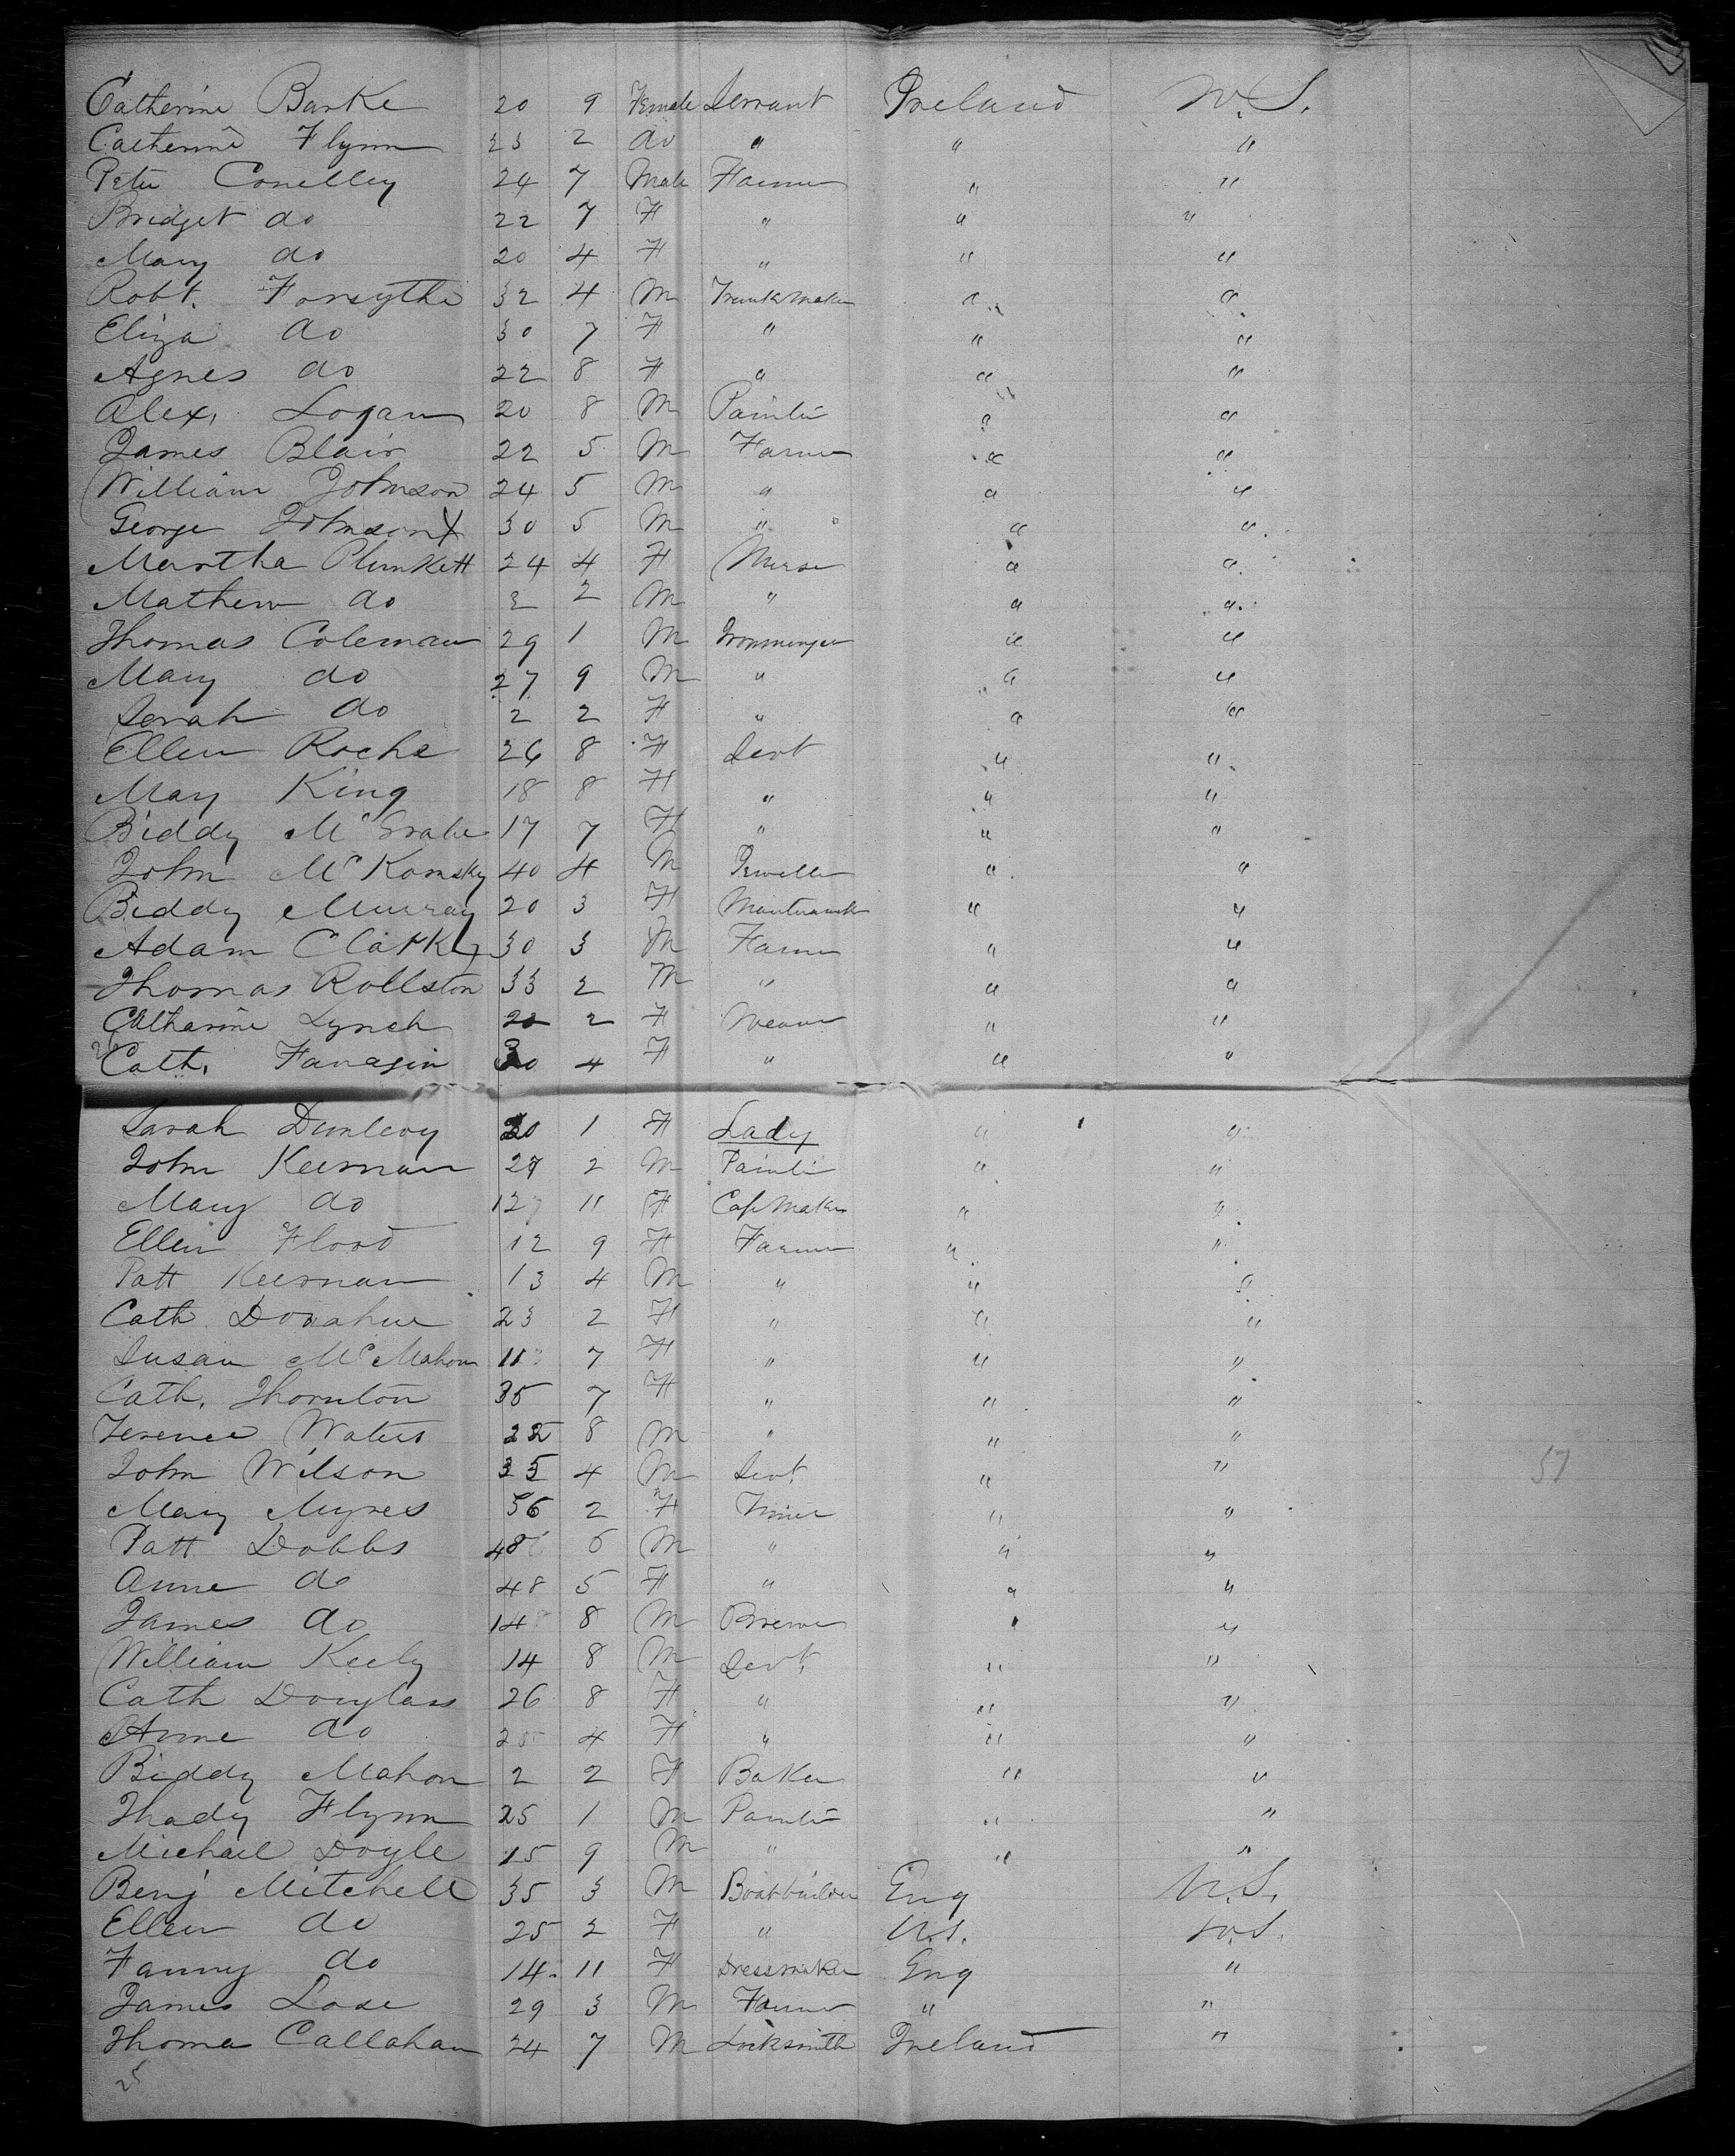 Catherine Barke 20 9 Female Servant Ireland U.S.
Catherine Flynn 23 2 do " " "
Peter Conelley 24 7 Male Farmer " "
Bridget do 22 7 F " " "
Mary do 20 4 F " " "
Robt. Forsythe 32 4 M Trunkmaker " "
Eliza do 30 7 F " " "
Agnes do 22 8 F " " "
Alex. Logan 20 8 M Painter " "
James Blair 22 5 M Farmer " "
William Johnson 24 5 M " " "
George Johnson X 30 5 M " " "
Martha Plunkett 24 4 F Nurse " "
Mathew do 2 2 M " " "
Thomas Coleman 29 1 M Ironmonger " "
Mary do 27 9 M " " "
Sarah do 2 2 F " " "
Ellen Roche 26 8 F Servt " "
Mary King 18 8 F " " "
Biddy 17 7 F " " "
John McKomsky 40 4 M Jeweller " "
Biddy Murray 20 3 F Mantuamk " "
Adam Clarke 30 3 M Farmer " "
Thomas Rollston 33 2 M " " "
Catharine Lynch 20 2 F Weaver " "
Cath. Fanagin 30 4 F " " "
Sarah Dunlevy 20 1 F Lady " "
John Keernan 27 2 M Painter " "
Mary do 12 11 F Cap Maker " "
Ellen Flood 12 9 F Farmer " "
Patt Keernan 13 4 M " " "
Cath Donahue 23 2 F " " "
Susan McMahon 11 7 F " " "
Cath. Thornton 35 7 F " " "
Terence Waters 22 8 M " " "
John Wilson 35 4 M Servt. " "
57
Mary Myres 56 2 F " "
Patt Dobbs 48 6 M " " "
Anne do 48 5 F " " "
James do 14 8 M Brewer " "
William Keely 14 8 M Servt. " "
Cath Douglass 26 8 F " " "
Anne do 25 4 F " " "
Biddy Mahon 2 2 F Baker " "
Thady Flynn 25 1 M Painter " "
Michael Doyle 15 9 M " " "
Benj Mitchell 35 3 M Boatbuilder Eng U.S.
Ellen do 25 2 F " U.S. U.S.
Fanny do 14 11 F Dressmaker Eng "
James Lose 29 3 M Farmer " "
Thomas Callahan 24 7 M Locksmith Ireland "
25